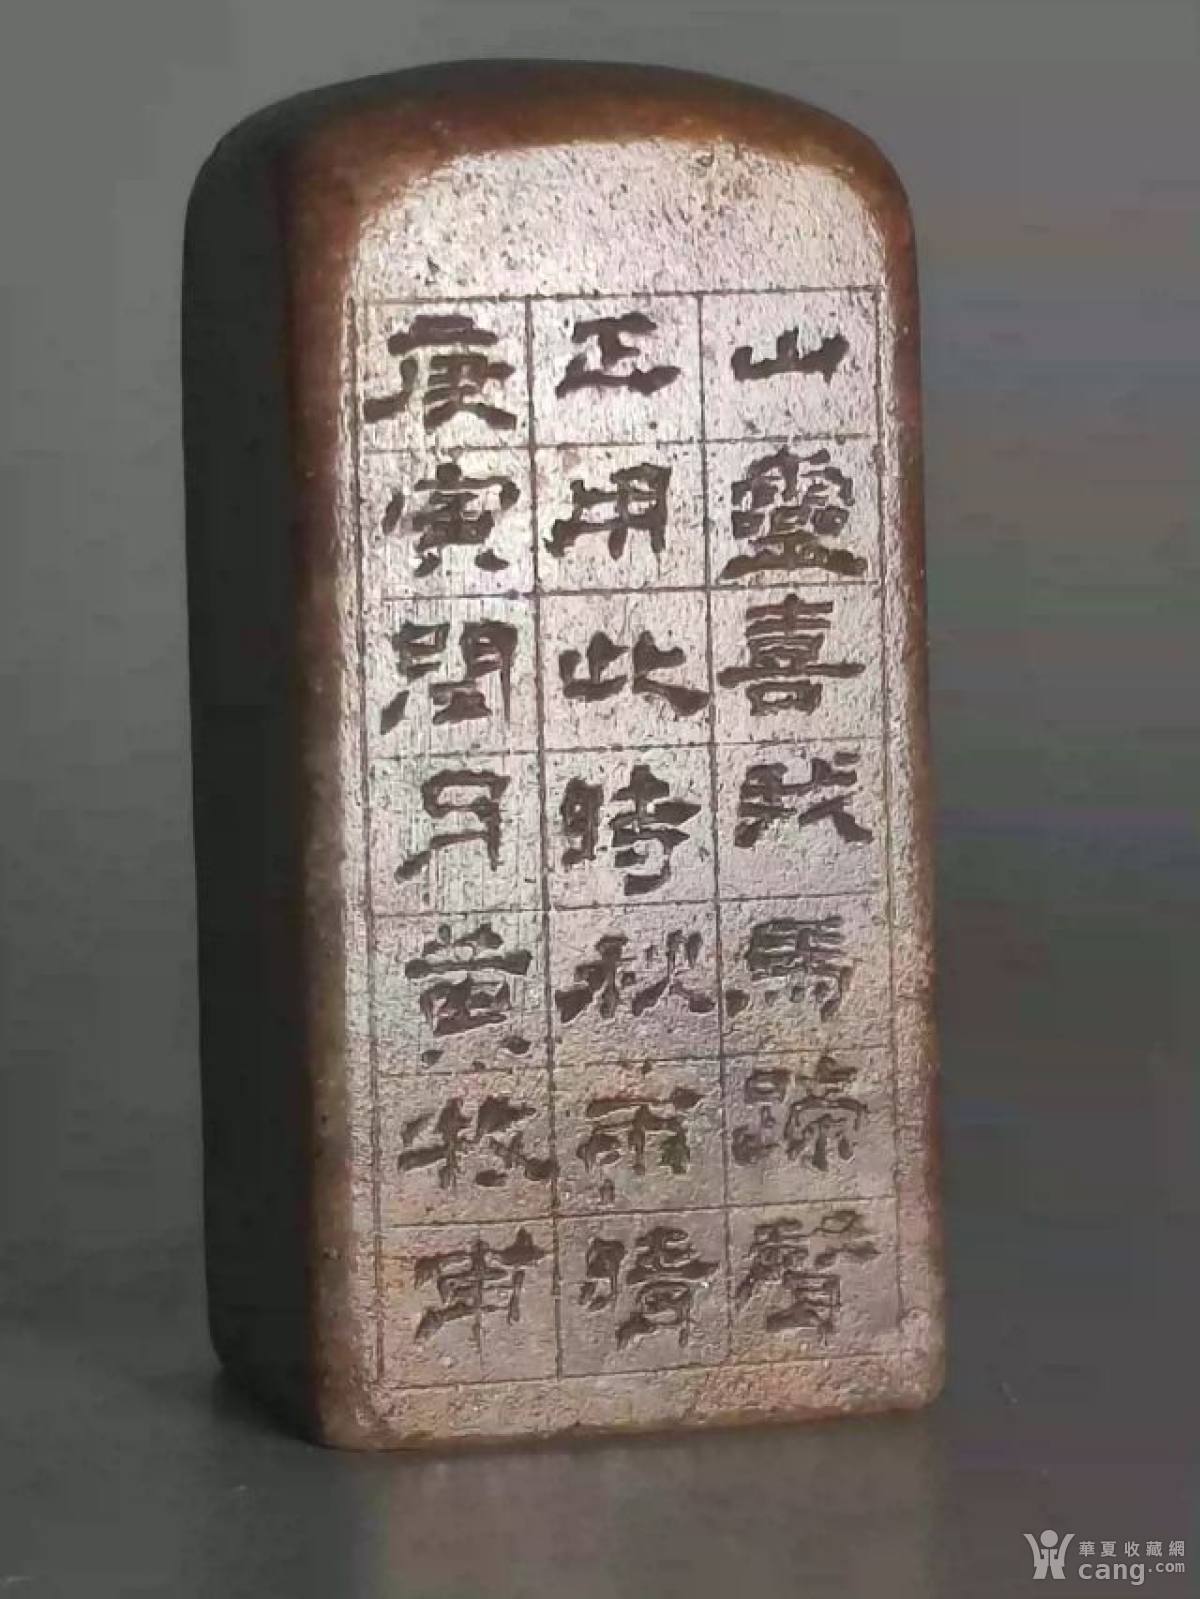 山靈喜我馬蹄聲
正用此時秋雨晴
庚寅閏月黃牧甫
華夏收藏網
cang.com